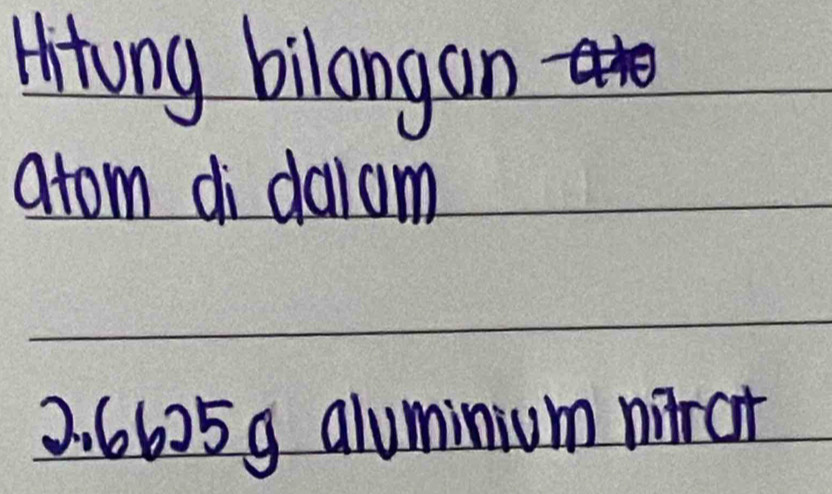 Hitung bilangan
atom di dalam
2.6625 g aluminium nitrat